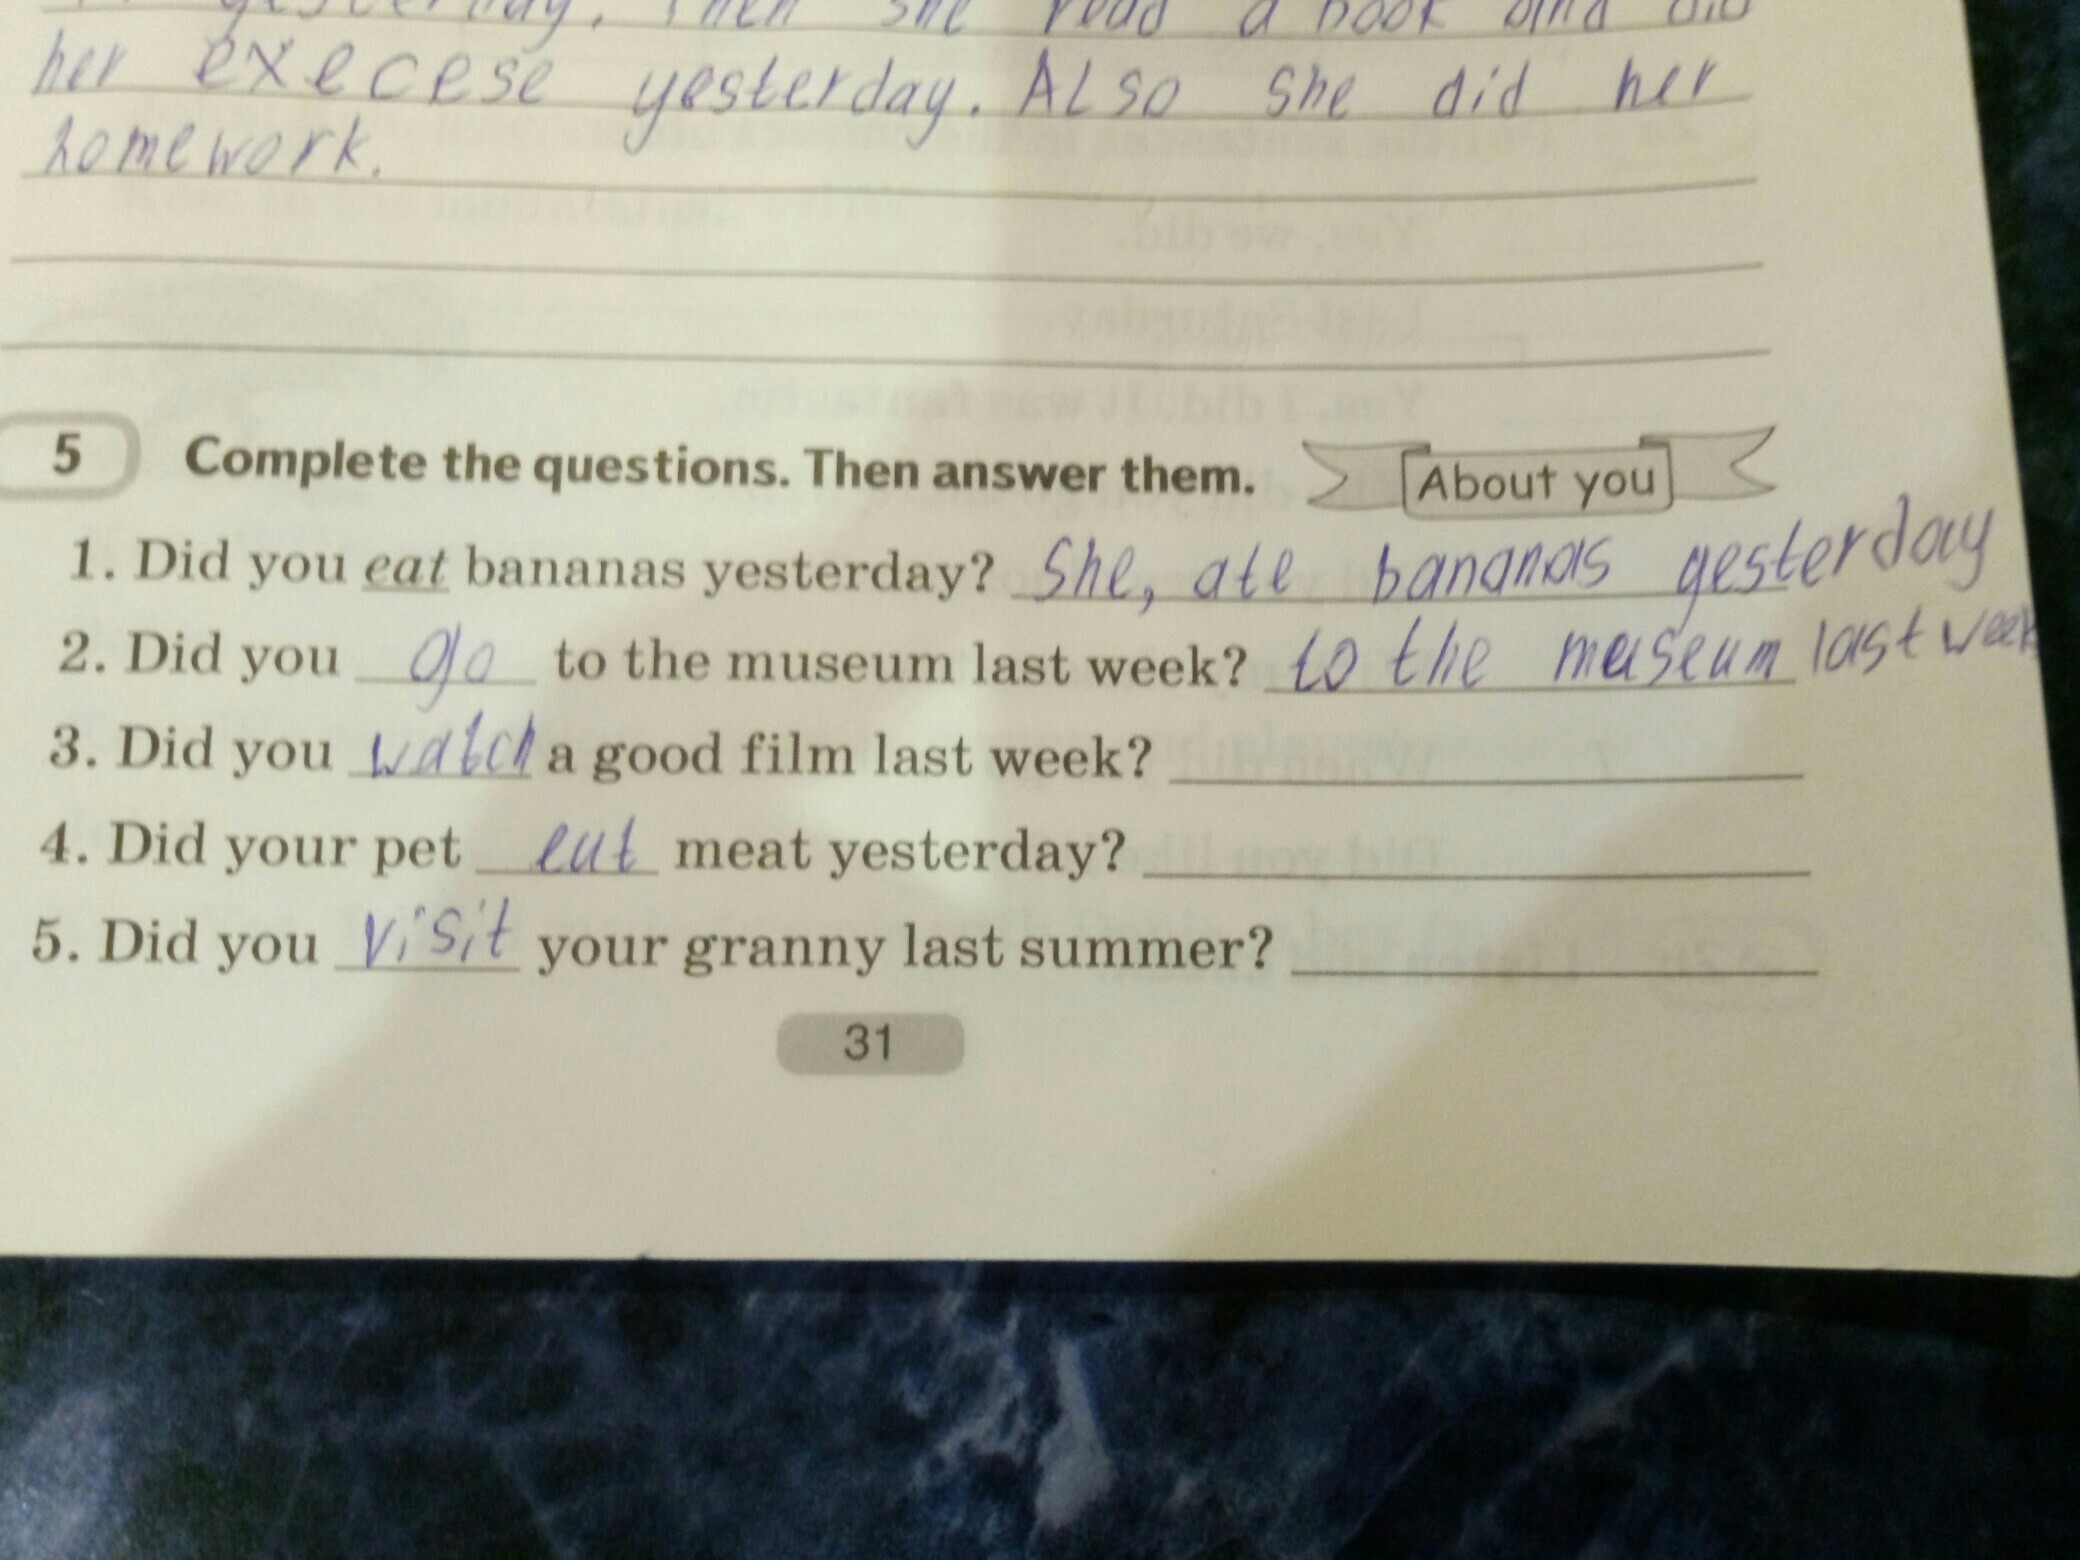 yesterday. Then she read a book and did
her execese yesterday. ALSO she did her
homework.
5 Complete the questions. Then answer them. About you
1. Did you eat bananas yesterday? She, ate bananas yesterday
2. Did you go to the museum last week? to the museum last week
3. Did you watch a good film last week?
4. Did your pet eat meat yesterday?
5. Did you visit your granny last summer?
31